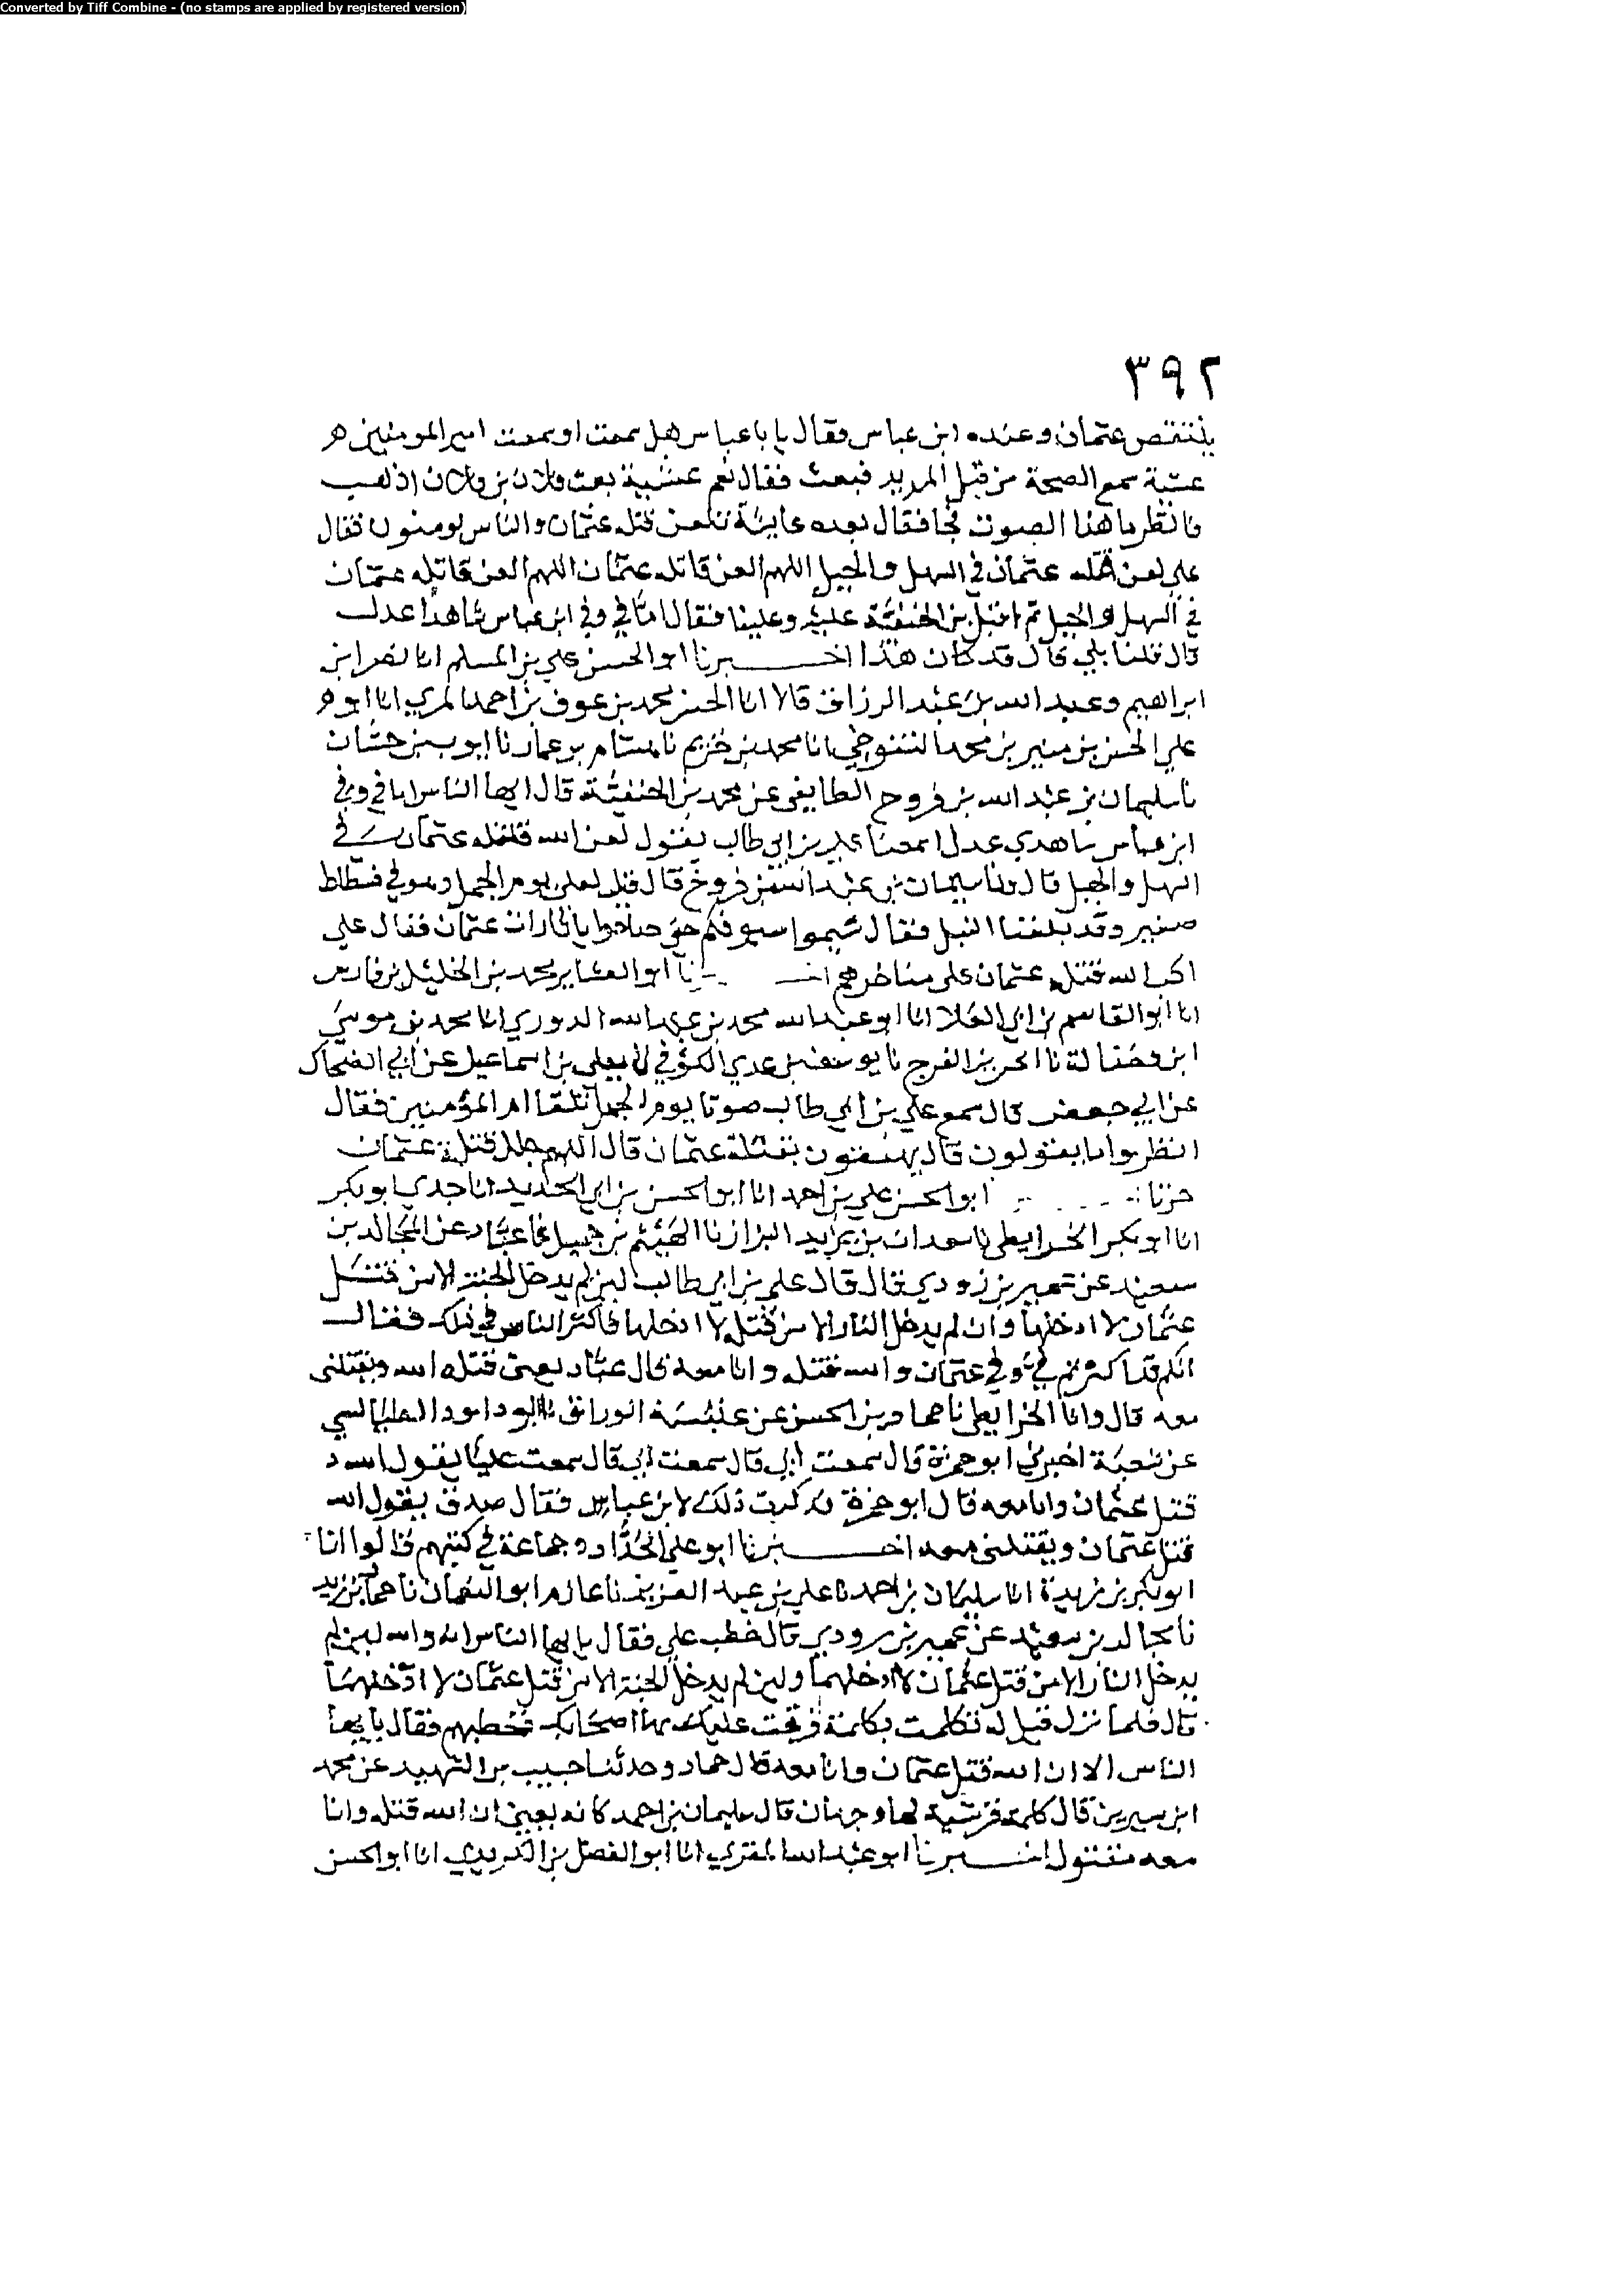 Converted by Tiff Combine - (no stamps are applied by registered version)
٣٩٢
ينتقص عثمان وعنده ابن عباس فقال يابا عباس هل سمعت اوسمعت امير المومنين
عشية سمع الصيحة من قبل المربد فبعث فقال نعم عشية بعث فلان بن فلان اذهب
فانظر ما هذا الصوت فجا فقال بعده عايشة تلعن قتلة عثمان والناس يومنون فقال
علي لعن قتلة عثمان في السهل والجبل اللهم العن قاتله عثمان اللهم العن قاتله عثمان
في السهل والجبل ثم اقبل بن الحنفية عليه وعلينا فقال اما في وفي ابن عباس شاهدا عدل
قال قلنا بلي قال قد كان هذا اخبرنا ابو الحسن علي بن المسلم انا نصر ابن
ابراهيم وعبد الله بن عبد الرزاق قالا انا ابو الحسن محمد بن عوف بن احمد المري انا ابو
علي الحسن بن منير بن محمد التنوخي انا محمد بن خريم نا هشام بن عمار نا ايوب بن حسان
نا سليمان بن عبد الله بن فروح الطايفي عن محمد بن الحنفية قال ايها الناس اما في وفي
ابن عباس شاهدي عدل سمعنا علي بن ابي طالب يقول لعن الله قتلة عثمان في
السهل والجبل قال ونا سليمان بن عبد الله بن فروخ قال قيل لعلي يوم الجمل وهو في فسطاط
صغير وقد بلغنا النبل فقال شيموا سيوفكم حتى صاحوا يا ثارات عثمان فقال علي
اكب الله قتلة عثمان على مناخرهم اخبرنا ابو العشاير محمد بن الخليل بن فارس
انا ابو القاسم بن ابي العلا انا ابو عبد الله محمد بن عبد الله الدوري انا محمد بن موسى
ابن فضالة نا الحسن بن الفرج نا يوسف بن عدي الكوفي نا يعلى بن اسماعيل عن ابي الضحاك
عن ابي جعفر قال سمع علي بن ابي طالب صوتا يوم الجمل تلقا ام المؤمنين فقال
انظروا ما يقولون قال يهتفون بقتلة عثمان قال اللهم جلل قتلة عثمان
خزيا ابو الحسن علي بن احمد انا ابو الحسن بن ابي الحديد انا جدي ابو بكر
انا ابو بكر الخرايطي نا سعدان بن يزيد البزاز نا الهيثم بن جميل نا عباد عن المجالد بن
سعيد عن عمير بن زودي قال قال علي بن ابي طالب لين لم يدخل الجنة الا من قتل
عثمان لا ادخلها وان لم يدخل النار الا من قتله لا ادخلها فاكثر الناس في ذلك فقال
انكم قد اكثرتم في وفي عثمان والله قتله وانا معه قال عباد يعني قتله الله ويقتلني
معه قال وانا الخرايطي نا حماد بن الحسن عن عنبسة الوراق نا ابو داود الطيالسي
عن شعبة اخبرني ابو حمزة قال سمعت ابي قال سمعت ابي قال سمعت عليا يقول الله
قتل عثمان وانا معه قال ابو حمزة فذكرت ذلك لابن عباس فقال صدق يقول الله
قتل عثمان ويقتلني معه اخبرنا ابو علي الحداد وجماعة في كتبهم قالوا انا
ابو بكر بن ريذة انا سليمان بن احمد نا علي بن عبد العزيز نا عارم ابو النعمان نا حماد بن زيد
نا مجالد بن سعيد عن عمير بن رودي قال خطب علي فقال يا يها الناس انه والله لين لم
يدخل النار الا من قتل عثمان لا ادخلها ولين لم يدخل الجنة الا من قتل عثمان لا ادخلها
قال فلما نزل قيل له تكلمت بكلمة فرقت عليك بها اصحابك فخطبهم فقال يا يها
الناس الا ان الله قتل عثمان وانا معه قال حماد وحدثنا حبيب بن الشهيد عن محمد
ابن سيرين قال كلمة قرشية لها وجهان قال سليمان بن احمد كانه يعني ان الله قتله وانا
معه مقتول اخبرنا ابو عبد الله المقري انا ابو الفضل بن الكريدي انا ابو الحسن